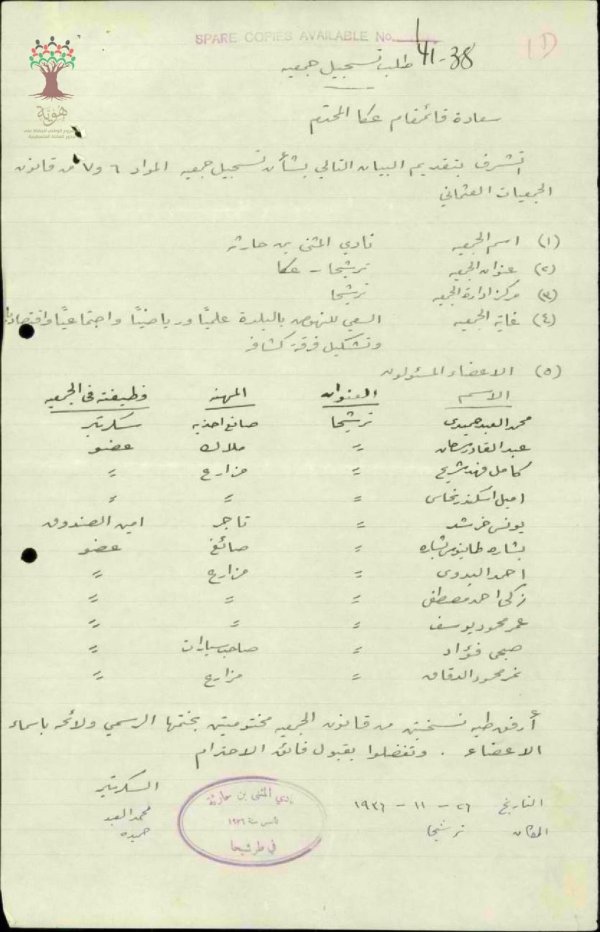 SPARE COPIES AVAILABLE No.
41-38
طلب تسجيل جمعيه
هوية
سعادة قائمقام عكا المحترم
اتشرف بتقديم البيان التالي بشأن تسجيل جمعيه المواد ٦ و٧ من قانون
الجمعيات العثماني
(١) اسم الجمعيه نادي المثنى بن حارثه
(٢) عنوان الجمعيه ترشيحا - عكا
(٣) مركز ادارة الجمعيه ترشيحا
(٤) غاية الجمعيه السعي للنهوض بالبلدة علميًا ورياضيًا واجتماعيًا واقتصاديا
وتشكيل فرقة كشافه
(٥) الاعضاء المسئولون
الاسم العنوان المهنه وظيفته في الجمعيه
محمد العبد حميدى ترشيحا صانع احذيه سكرتير
عبد القادر سرحان = ملاك عضو
كامل فهد شريح = مزارع =
اميل اسكندر نحاس = = =
يونس خرشد = تاجر امين الصندوق
بشاره طانيوس بشاره = صائغ عضو
احمد البدوى = مزارع =
زكي احمد مصطفى = = =
عمر محمود يوسف = = =
صبحي فؤاد = صاحب سيارات =
نمر محمود الدقاق = مزارع =
أرفق طيه نسختين من قانون الجمعيه مختومتين بختمها الرسمي ولائحه باسماء
الاعضاء . وتفضلوا بقبول فائق الاحترام
السكرتير
التاريخ ٢٦ - ١١ - ١٩٣٦
محمد العبد
المكان ترشيحا
حميده
نادي المثنى بن حارثة
تأسس سنة ١٩٣٦
في طرشيحا